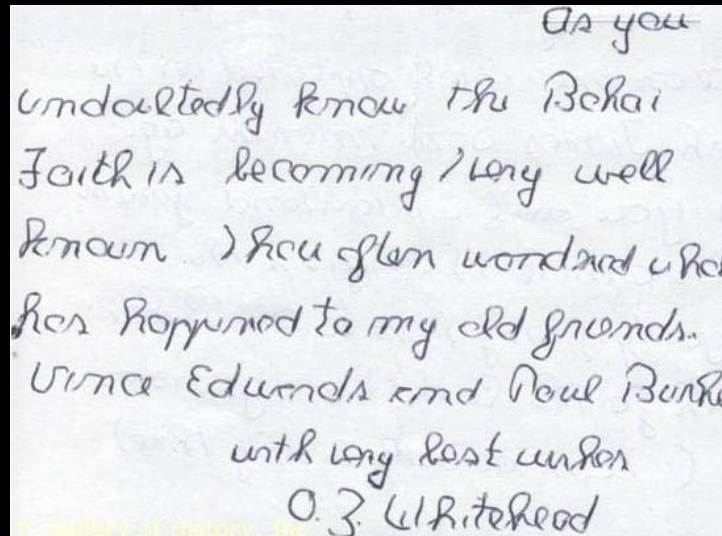 As you
undoubtedly know the Bahai
Faith is becoming very well
known. I have often wondered what
has happened to my old friends.
Vince Edwards and Paul Burke
with very best wishes
O. Z. Whitehead
Gallery of History, Inc.